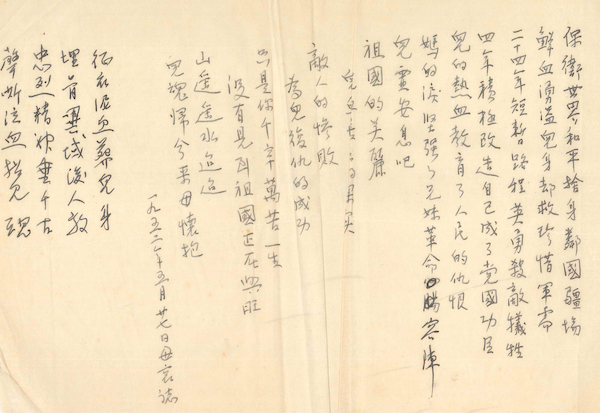 保衛世界和平捨身鄰國疆場
鮮血湧溢兒身却救珍惜軍需
二十四年短暫路程英勇殺敵犧牲
四年積極改造自己成了党國功臣
兒的熱血教育了人民的仇恨
媽的淚坚强了兄妹革命陣
兒靈安息吧
祖國的美麗
敵人的慘敗
為兒復仇的成功
只是你千辛萬苦一生
没有見到祖國正在興旺
山遥遥水迢迢
兒魂歸兮来母懷抱
一九五二年五月廿七日母哀誌
征衣泥血葬兒身
埋骨異域後人敬
忠烈精神垂千古
聲嘶泣血招兒魂